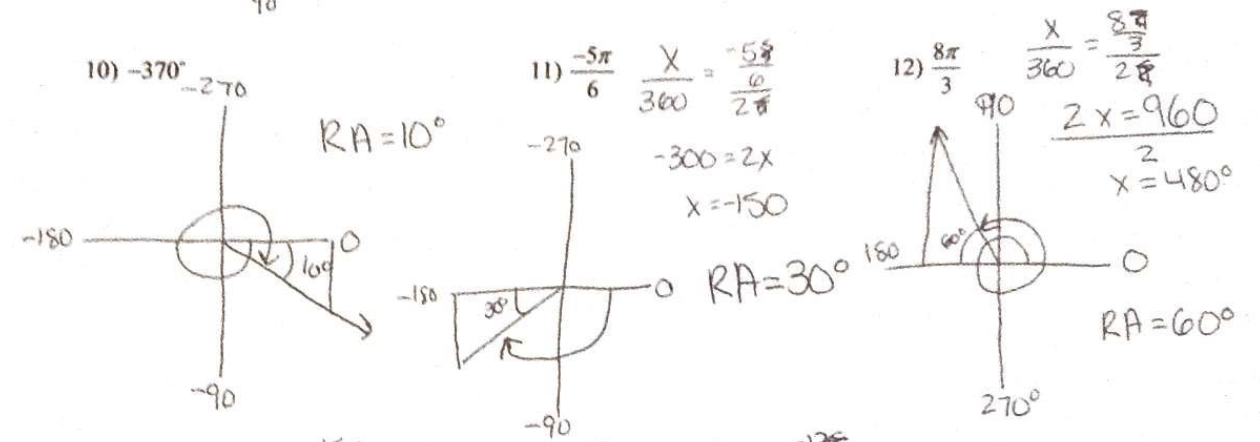 90
10) -370°
-270
RA=10°
-180
0
10°
-90
11) -5π/6
x/360 = (-5π/6)/2π
-300=2x
x=-150
-270
-180
0
30°
RA=30°
-90
12) 8π/3
x/360 = (8π/3)/2π
2x=960
2
x=480°
90
180
60°
0
RA=60°
270°